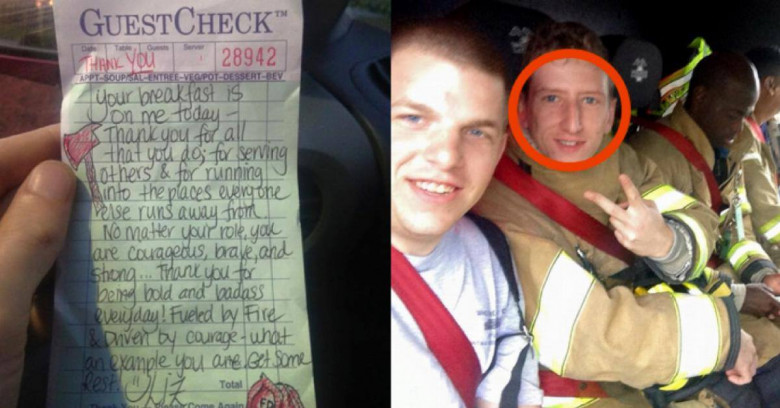 GUESTCHECK™
Date Table Guests Server
THANK YOU 28942
APPT-SOUP/SAL-ENTREE-VEG/POT-DESSERT-BEV
your breakfast is
on me today -
Thank you for all
that you do; for serving
others & for running
into the places everyone
else runs away from.
No matter your role, you
are courageous, brave, and
strong... Thank you for
being bold and badass
everyday! Fueled by Fire
& Driven by courage - what
an example you are. Get some
Rest. Liz
Total
FD
Thank You - Please Come Again